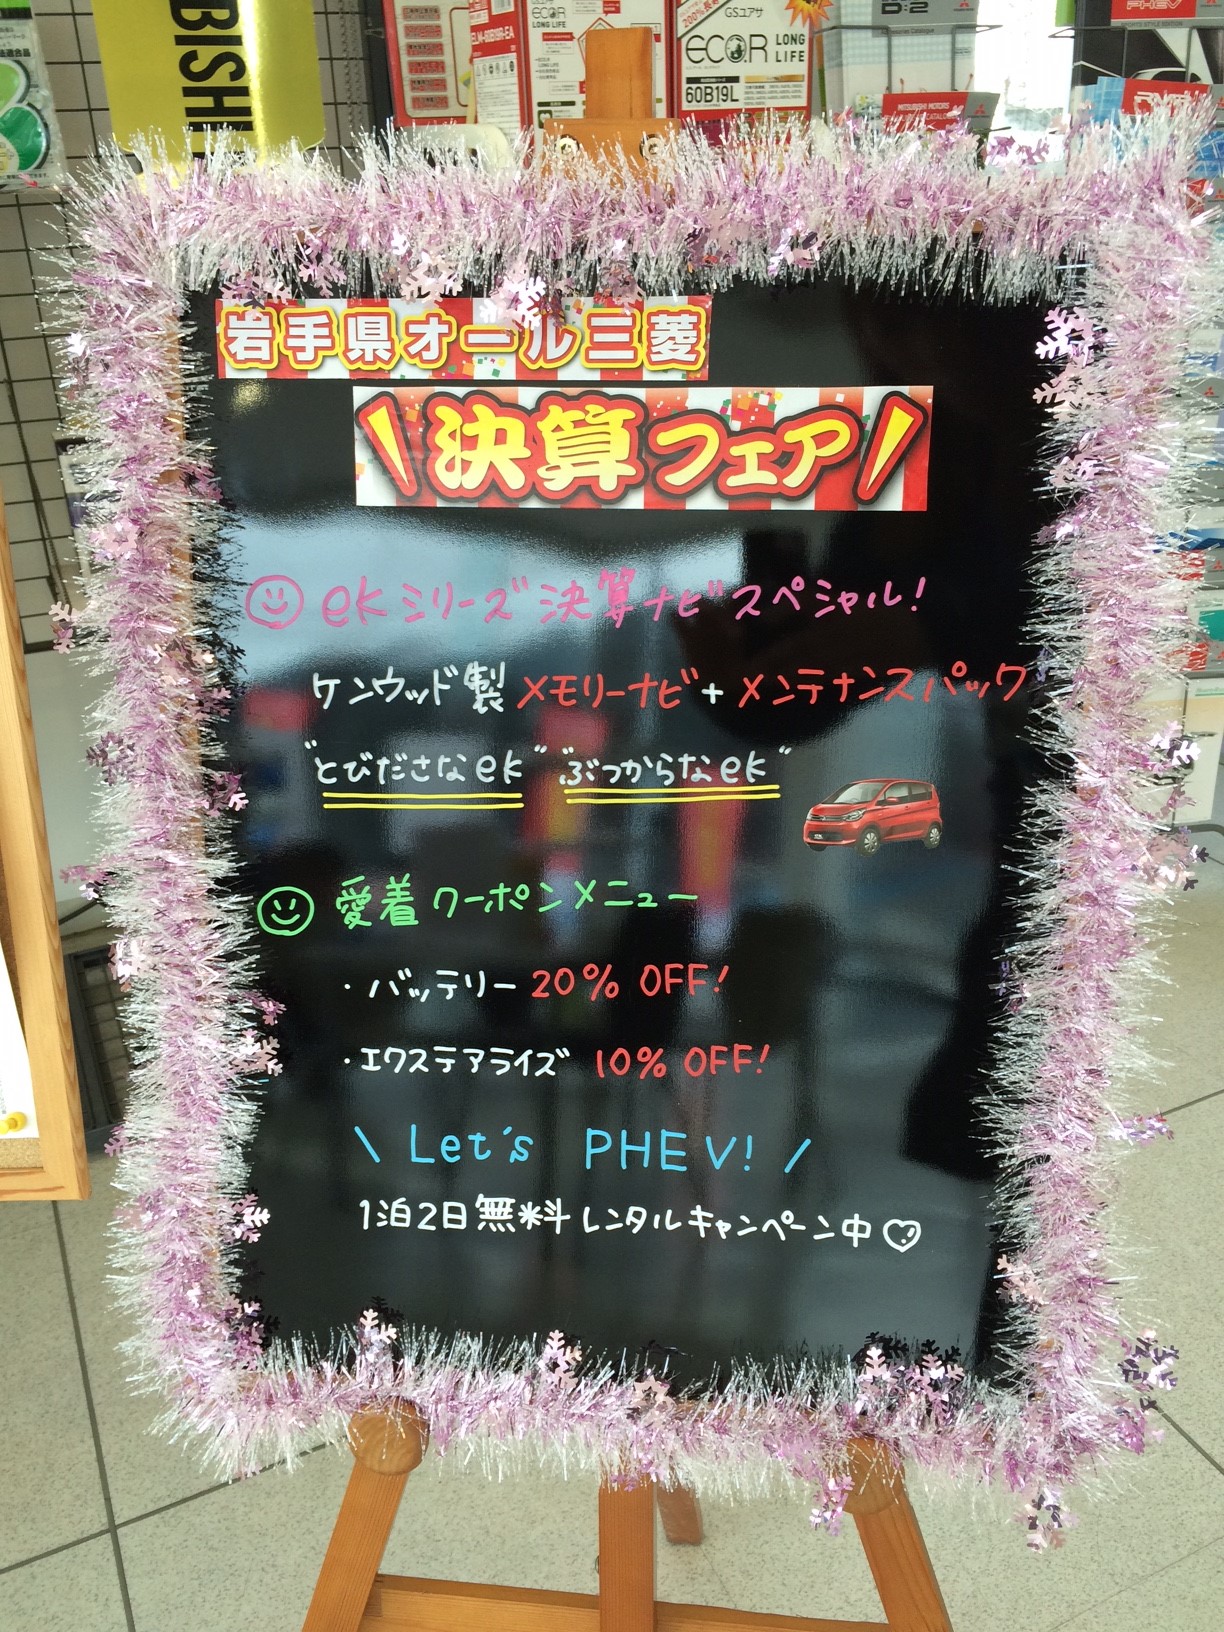 BISHI
ELM-60B19R-EA
ECO.R
LONG LIFE
200%
GSユアサ
ECO.R LONG LIFE
60B19L
D:2
MITSUBISHI MOTORS
PHEV
岩手県オール三菱
\決算フェア/
ekシリーズ決算ナビスペシャル!
ケンウッド製メモリーナビ+メンテナンスパック
"とびださなek" "ぶつからなek"
愛着クーポンメニュー
・バッテリー 20% OFF!
・エクステアライズ 10% OFF!
\ Let's PHEV! /
1泊2日無料レンタルキャンペーン中♡